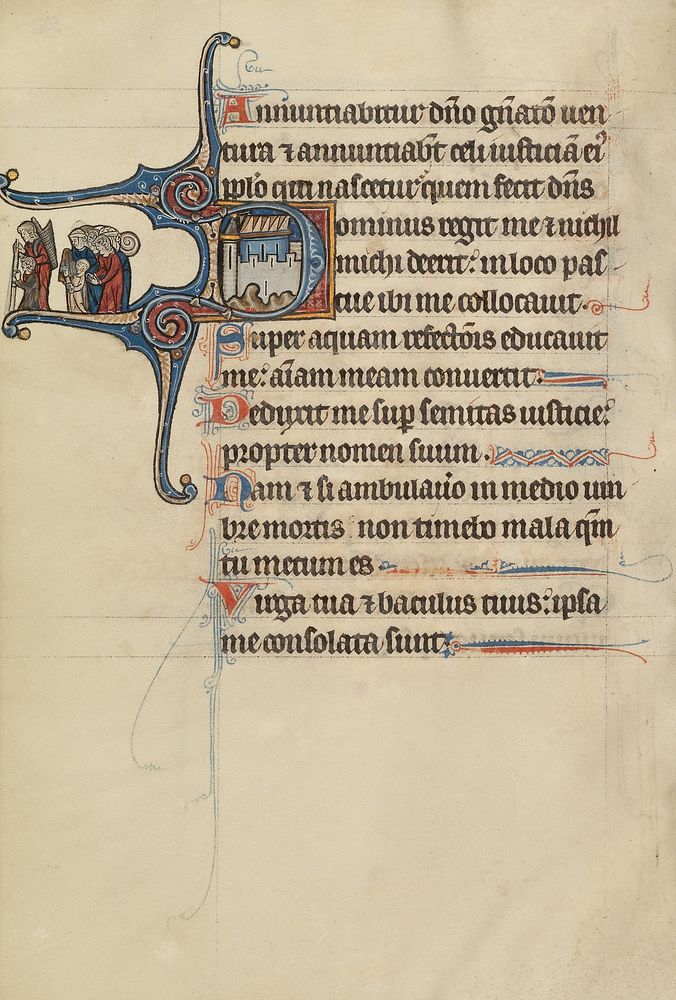 Annuntiabitur dño gñatõ uen
tura ⁊ annuntiabt̃ celi iusticiã ei⁹
pplo qui nascetur quem fecit dñs
Dominus regit me ⁊ nichil
michi deerit: in loco pas-
cue ibi me collocauit.
Super aquam refectõis educauit
me: aĩam meam conuertit.
Deduxit me sup semitas iusticie:
propter nomen suum.
Nam ⁊ si ambulauero in medio um
bre mortis non timebo mala qm̃
tu mecum es
Virga tua ⁊ baculus tuus: ipsa
me consolata sunt.